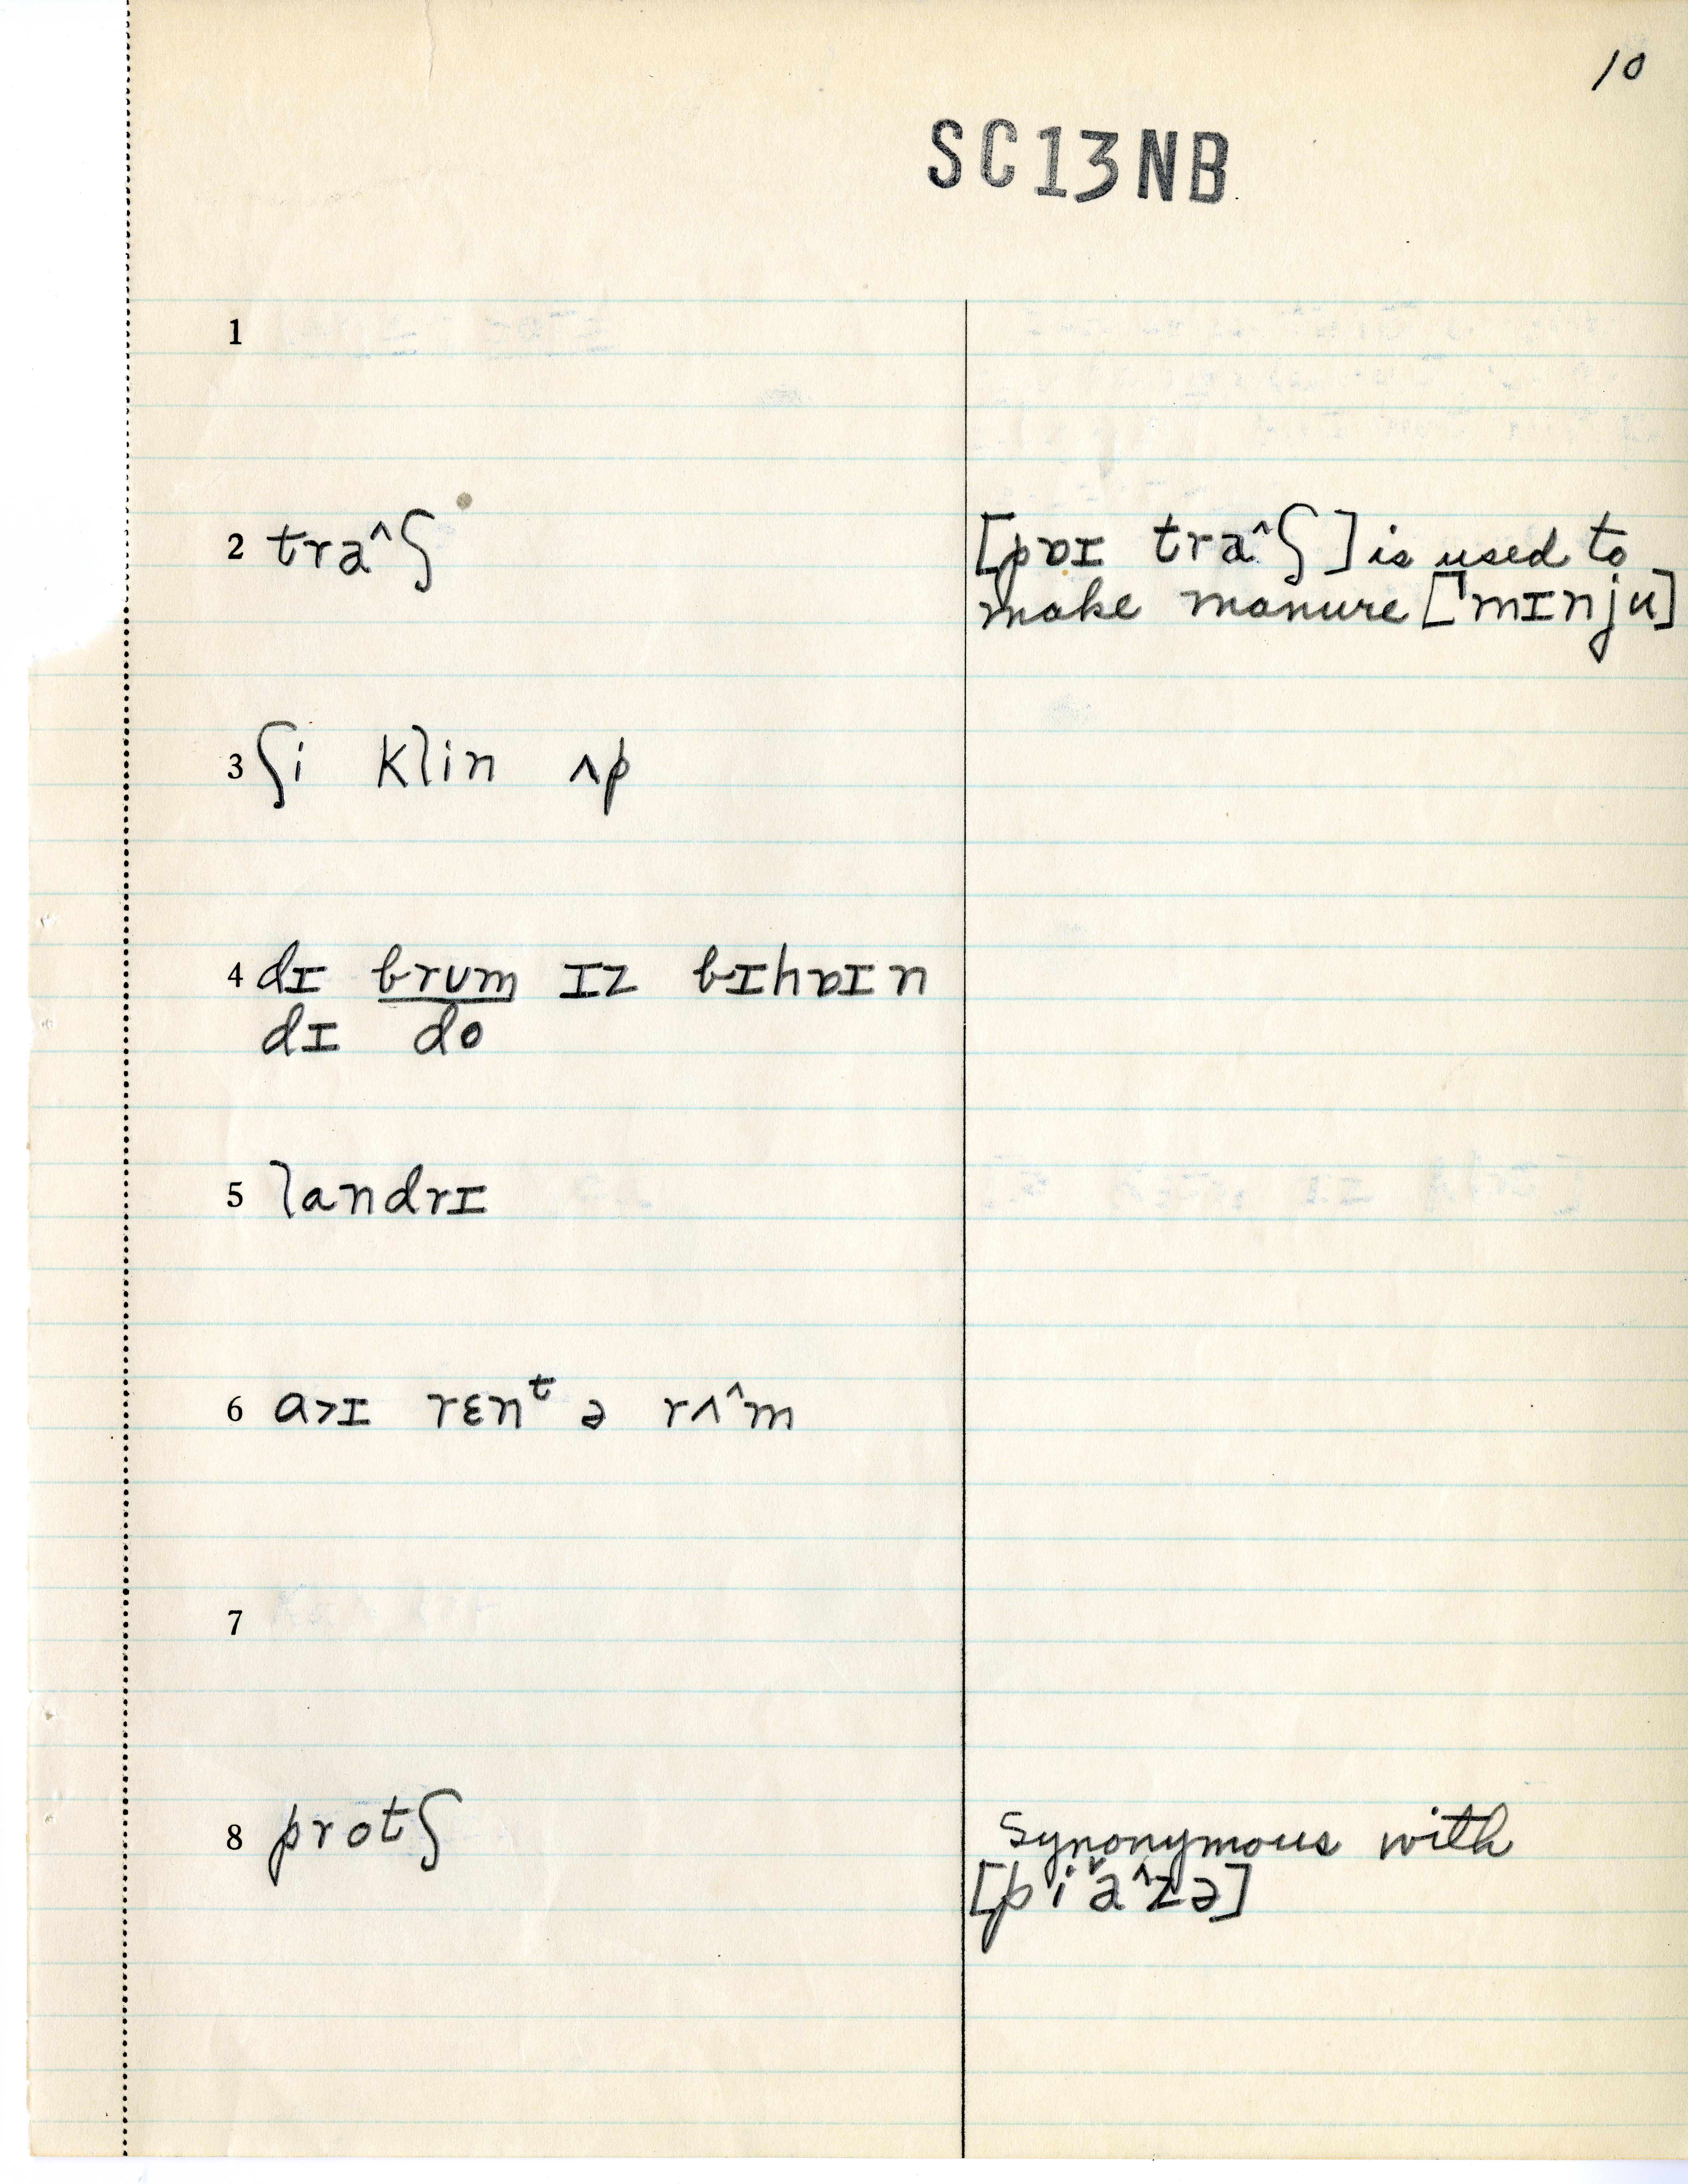 10
SC13NB
1
2 traˆʃ
[pɒɪ traˆʃ] is used to
make manure [ˈmɪnju]
3 ʃi klin ʌp
4 dɪ brʊm ɪz bɪhɒɪn
dɪ do
5 landrɪ
6 a˃ɪ rɛnᵗ ə rʌˆm
7
8 protʃ
synonymous with
[piˈaˆzə]